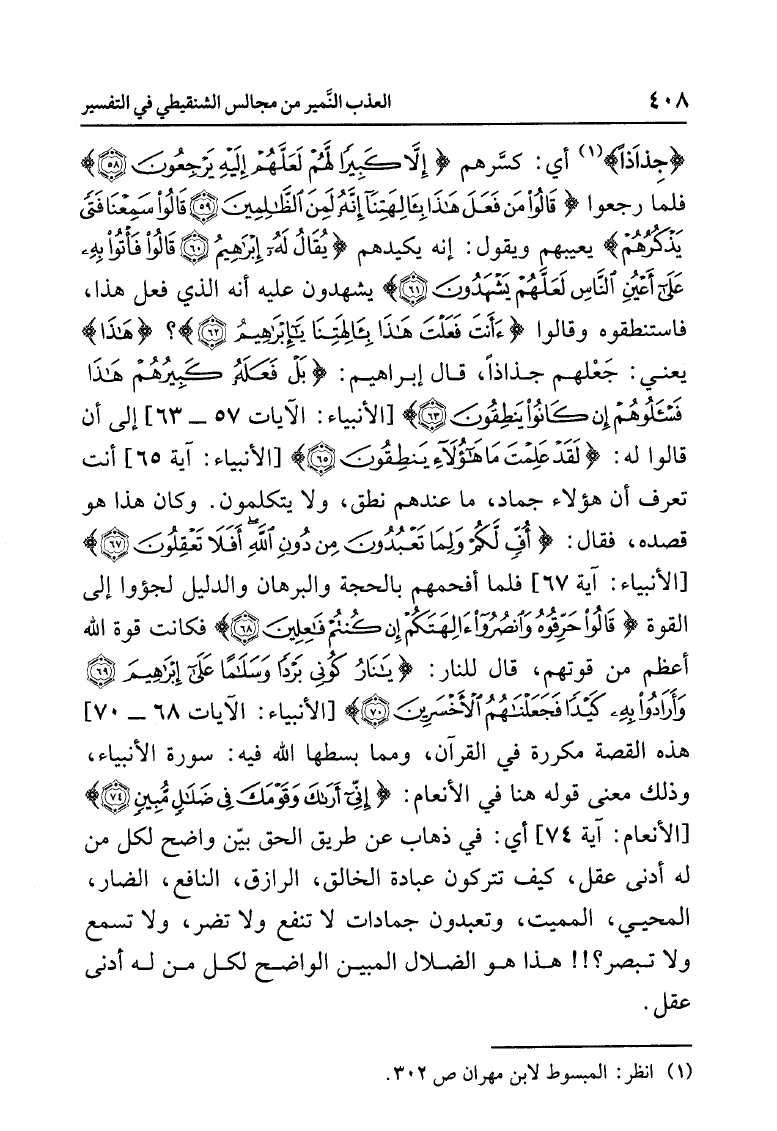 ٤٠٨ العذب النَّمير من مجالس الشنقيطي في التفسير
﴿جِذَاذاً﴾(١) أي: كسَّرهم ﴿إِلَّا كَبِيرًا لَّهُمْ لَعَلَّهُمْ إِلَيْهِ يَرْجِعُونَ ۝٥٨﴾
فلما رجعوا ﴿قَالُوا۟ مَن فَعَلَ هَٰذَا بِـَٔالِهَتِنَآ إِنَّهُۥ لَمِنَ ٱلظَّٰلِمِينَ ۝٥٩ قَالُوا۟ سَمِعْنَا فَتًى
يَذْكُرُهُمْ﴾ يعيبهم ويقول: إنه يكيدهم ﴿يُقَالُ لَهُۥٓ إِبْرَٰهِيمُ ۝٦٠ قَالُوا۟ فَأْتُوا۟ بِهِۦ
عَلَىٰٓ أَعْيُنِ ٱلنَّاسِ لَعَلَّهُمْ يَشْهَدُونَ ۝٦١﴾ يشهدون عليه أنه الذي فعل هذا،
فاستنطقوه وقالوا ﴿ءَأَنتَ فَعَلْتَ هَٰذَا بِـَٔالِهَتِنَا يَٰٓإِبْرَٰهِيمُ ۝٦٢﴾؟ ﴿هَٰذَا﴾
يعني: جَعْلهم جذاذاً، قال إبراهيم: ﴿بَلْ فَعَلَهُۥ كَبِيرُهُمْ هَٰذَا
فَسْـَٔلُوهُمْ إِن كَانُوا۟ يَنطِقُونَ ۝٦٣﴾ [الأنبياء: الآيات ٥٧ ــ ٦٣] إلى أن
قالوا له: ﴿لَقَدْ عَلِمْتَ مَا هَٰٓؤُلَآءِ يَنطِقُونَ ۝٦٥﴾ [الأنبياء: آية ٦٥] أنت
تعرف أن هؤلاء جماد، ما عندهم نطق، ولا يتكلمون. وكان هذا هو
قصده، فقال: ﴿أُفٍّ لَّكُمْ وَلِمَا تَعْبُدُونَ مِن دُونِ ٱللَّهِ ۖ أَفَلَا تَعْقِلُونَ ۝٦٧﴾
[الأنبياء: آية ٦٧] فلما أفحمهم بالحجة والبرهان والدليل لجؤوا إلى
القوة ﴿قَالُوا۟ حَرِّقُوهُ وَٱنصُرُوٓا۟ ءَالِهَتَكُمْ إِن كُنتُمْ فَٰعِلِينَ ۝٦٨﴾ فكانت قوة الله
أعظم من قوتهم، قال للنار: ﴿يَٰنَارُ كُونِى بَرْدًا وَسَلَٰمًا عَلَىٰٓ إِبْرَٰهِيمَ ۝٦٩
وَأَرَادُوا۟ بِهِۦ كَيْدًا فَجَعَلْنَٰهُمُ ٱلْأَخْسَرِينَ ۝٧٠﴾ [الأنبياء: الآيات ٦٨ ــ ٧٠]
هذه القصة مكررة في القرآن، ومما بسطها الله فيه: سورة الأنبياء،
وذلك معنى قوله هنا في الأنعام: ﴿إِنِّىٓ أَرَىٰكَ وَقَوْمَكَ فِى ضَلَٰلٍ مُّبِينٍ ۝٧٤﴾
[الأنعام: آية ٧٤] أي: في ذهاب عن طريق الحق بيّن واضح لكل من
له أدنى عقل، كيف تتركون عبادة الخالق، الرازق، النافع، الضار،
المحيي، المميت، وتعبدون جمادات لا تنفع ولا تضر، ولا تسمع
ولا تبصر؟!! هذا هو الضلال المبين الواضح لكل من له أدنى
عقل.
(١) انظر: المبسوط لابن مهران ص ٣٠٢.